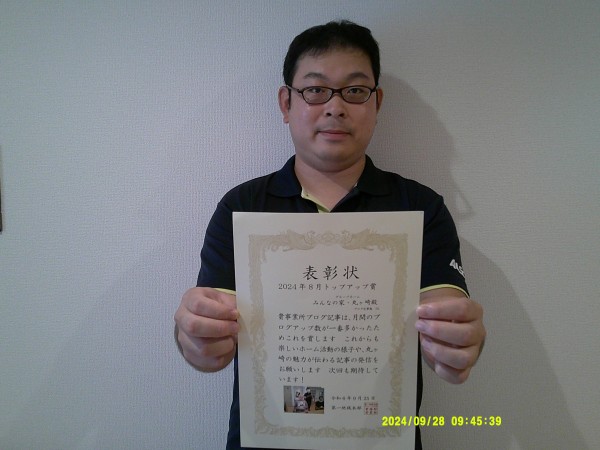 表彰状
2024年8月トップアップ賞
グループホーム
みんなの家・丸ヶ崎殿
貴事業所ブログ記事は、月間のブ
ログアップ数が一番多かったた
めこれを賞します　これからも
楽しいホーム活動の様子や、丸ヶ
崎の魅力が伝わる記事の発信を
お願いします　次回も期待して
います！
令和6年9月25日
第一地域本部
2024/09/28 09:45:39